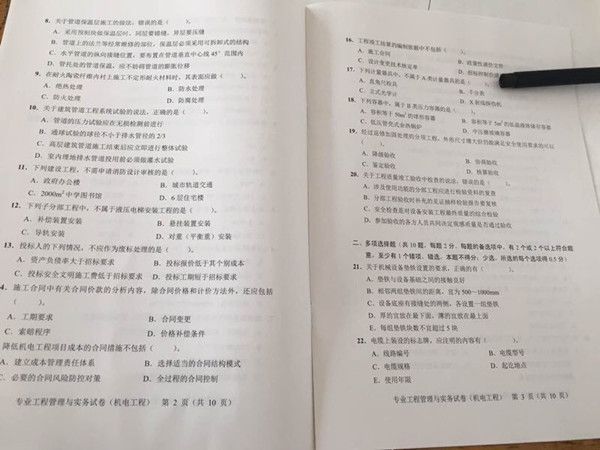 8. 关于管道保温层施工的做法，错误的是（ ）。
A. 采用预制块做保温层时，同层要错缝，异层要压缝
B. 管道上的法兰等经常维修的部位，保温层必须采用可拆卸式的结构
C. 水平管道的纵向接缝位置，要布置在管道垂直中心线45°范围内
D. 管托处的管道保温，应不妨碍管道的膨胀位移
9. 在耐火陶瓷纤维内衬上施工不定形耐火材料时，其表面应做（ ）。
A. 绝热处理 B. 防水处理
C. 防火处理 D. 防腐处理
10. 关于建筑管道工程系统试验的说法，正确的是（ ）。
A. 管道的压力试验应在无损检测前进行
B. 通球试验的球径不小于排水管径的2/3
C. 高层建筑管道施工结束后应立即进行整体试验
D. 室内埋地排水管道投用前必须做灌水试验
11. 下列建设工程，不需申请消防设计审核的是（ ）。
A. 政府办公楼 B. 城市轨道交通
C. 2000m²中学图书馆 D. 6层住宅楼
12. 下列子分部工程中，不属于液压电梯安装工程的是（ ）。
A. 补偿装置安装 B. 悬挂装置安装
C. 导轨安装 D. 对重（平衡重）安装
13. 投标人的下列情况，不应作为废标处理的是（ ）。
A. 资产负债率大于招标要求 B. 投标报价低于其个别成本
C. 投标安全文明施工费低于招标要求 D. 投标工期短于招标要求
4. 施工合同中有关合同价款的分析内容，除合同价格和计价方法外，还应包括
（ ）。
A. 工期要求 B. 合同变更
C. 索赔程序 D. 价格补偿条件
降低机电工程项目成本的合同措施不包括（ ）。
A. 建立成本管理责任体系 B. 选择适当的合同结构模式
C. 必要的合同风险防控对策 D. 全过程的合同控制
专业工程管理与实务试卷（机电工程） 第 2 页（共 10 页）
16. 工程竣工结算的编制依据中不包括（ ）。
A. 施工合同 B. 政策性调价文件
C. 设计变更技术核定单 D. 招标控制价
17. 下列计量器具中，不属于A类计量器具的是（ ）。
A. 直角尺检具 B. 千分表
C. 立式光学计 D. X射线探伤机
18. 下列容器中，属于Ⅱ类压力容器的是（ ）。
A. 容积等于50m³的球形容器 B. 容积等于5m³的低温液体储存容器
C. 低压管壳式余热锅炉 D. 中压搪玻璃容器
19. 经过返修加固处理的分项工程，外形尺寸增大但仍能满足安全使用要求的可以
（ ）。
A. 降级验收 B. 协商验收
C. 鉴定验收 D. 核算验收
20. 关于工程质量竣工验收中检查的说法，错误的是（ ）。
A. 涉及使用功能的分部工程应进行检验资料的复查
B. 分部工程验收时补充的见证抽样检验报告要复核
C. 安全检查是对设备安装工程最终质量的综合检验
D. 参加验收的各方人员共同决定观感质量是否通过验收
二、多项选择题（共 10 题，每题 2 分。每题的备选项中，有 2 个或 2 个以上符合题
意，至少有 1 个错项。错选，本题不得分；少选，所选的每个选项得 0.5 分）
21. 关于机械设备垫铁设置的要求，正确的有（ ）。
A. 垫铁与设备基础之间的接触良好
B. 相邻两组垫铁间的距离，宜为500～1000mm
C. 设备底座有接缝处的两侧，各设置一组垫铁
D. 厚的宜放在最下面，薄的宜放在最上面
E. 每组垫铁块数不宜超过5块
22. 电缆上装设的标志牌，应注明的内容有（ ）。
A. 线路编号 B. 电缆型号
C. 电缆规格 D. 起讫地点
E. 使用年限
专业工程管理与实务试卷（机电工程） 第 3 页（共 10 页）